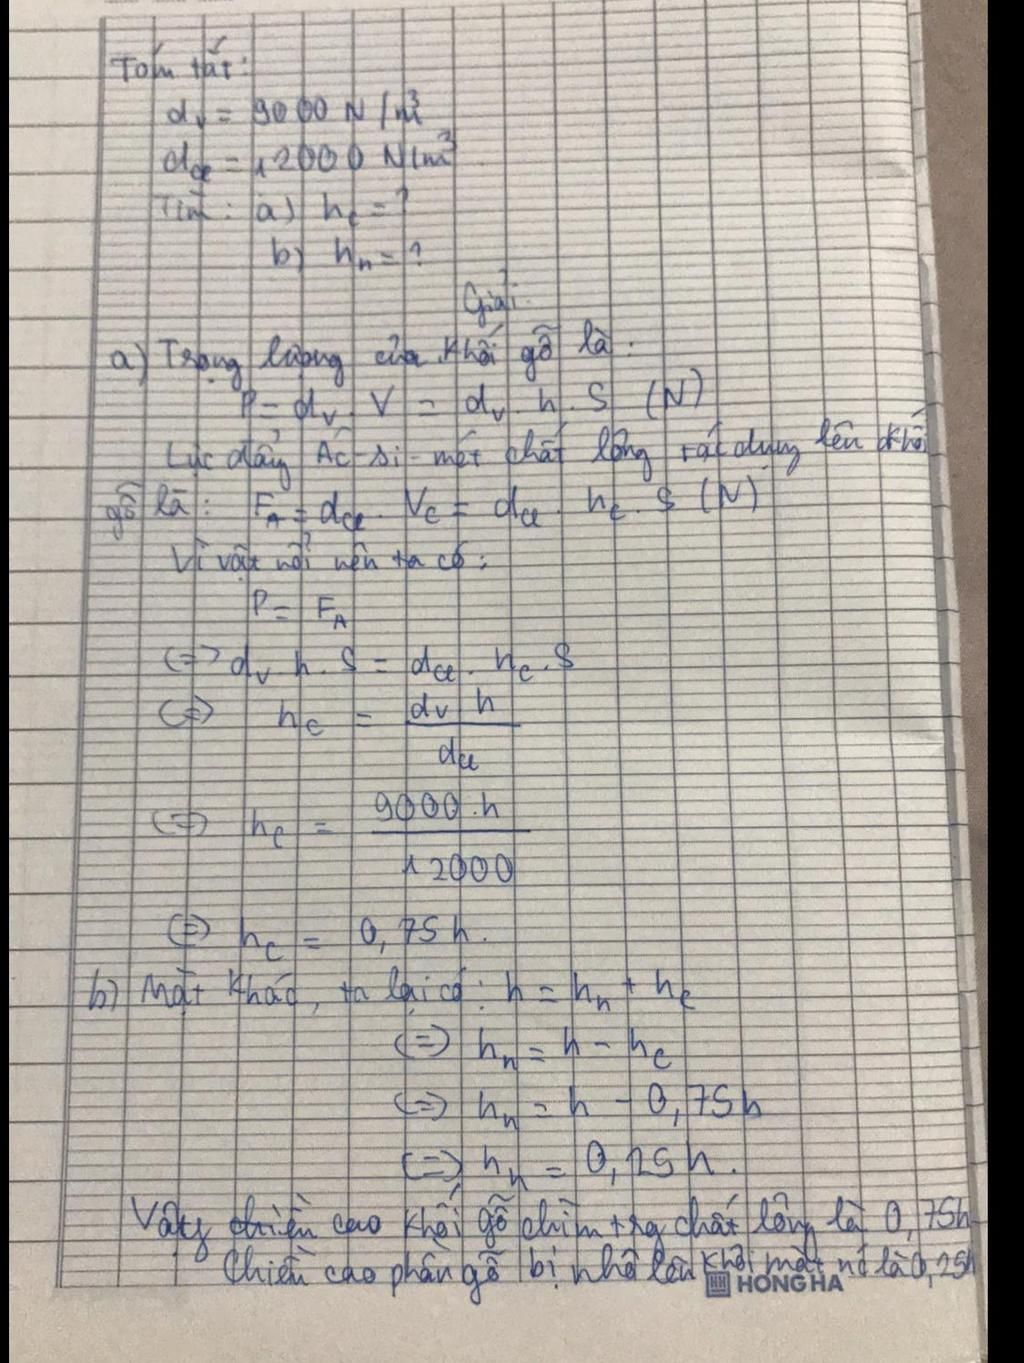 Tóm tắt:
dv = 9000 N/m³
dcl = 12000 N/m³
Tìm: a) hc = ?
b) hn = ?
Giải
a) Trọng lượng của khối gỗ là:
P = dv. V = dv. h. S (N)
Lực đẩy Ác-si-mét chất lỏng tác dụng lên khối
gỗ là: FA = dcl. Vc = dcl. hc. S (N)
Vì vật nổi nên ta có:
P = FA
(=) dv h. S = dcl. hc. S
(=) hc = dv h / dcl
(=) hc = 9000.h / 12000
(=) hc = 0,75h.
b) Mặt khác, ta lại có: h = hn + hc
(=) hn = h - hc
(=) hn = h - 0,75h
(=) hn = 0,25h.
Vậy chiều cao khối gỗ chìm trg chất lỏng là 0,75h
Chiều cao phần gỗ bị nhô lên khỏi mặt nc là 0,25h
HONG HA